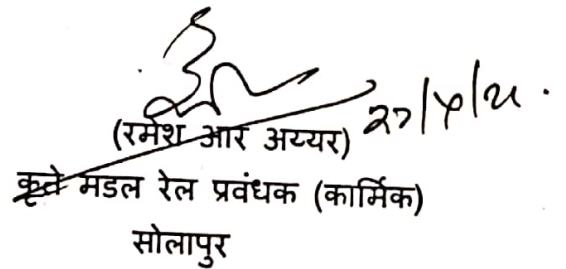 (रमेश आर अय्यर)
कृते मडल रेल प्रवंधक (कार्मिक)
सोलापुर